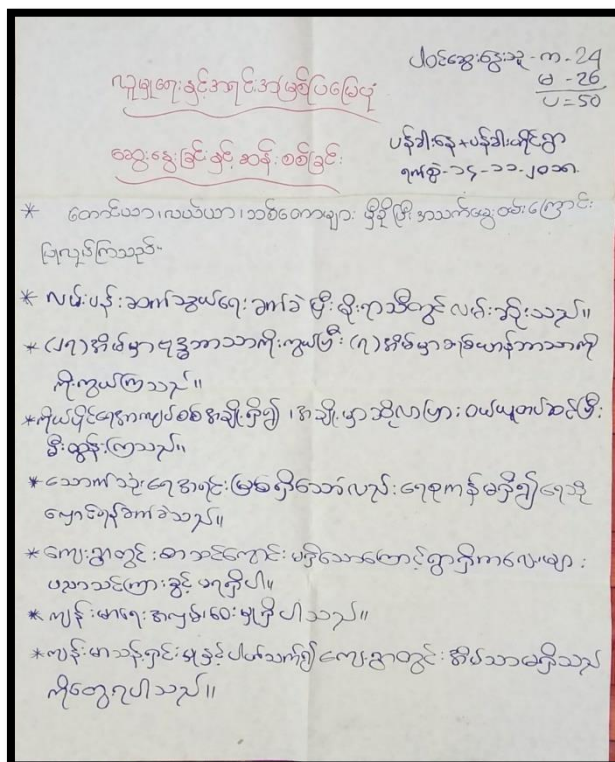 ပါဝင်ဆွေးနွေးသူ - က - 24
မ - 26
ပ = 50
လူမှုရေးနှင့်အရင်းအမြစ်ပြမြေပုံ
ဆွေးနွေးခြင်းနှင့် ဆန်းစစ်ခြင်း
ပန်ခါးနေ + ပန်ခါးတိုင်ရွာ
ရက်စွဲ - ၁၄-၁၁-၂၀၁၈
* တောင်ယာ၊ လယ်ယာ၊ သစ်တောများ မှီခိုပြီး အသက်မွေးဝမ်းကြောင်း
ပြုလုပ်ကြသည်။
* လမ်းပန်းဆက်သွယ်ရေး ခက်ခဲပြီး မိုးရာသီတွင် လမ်းဆိုးသည်။
* (၂၇) အိမ်မှာ ဗုဒ္ဓဘာသာကိုးကွယ်ပြီး (၇) အိမ်မှာ ခရစ်ယာန်ဘာသာကို
ကိုးကွယ်ကြသည်။
* ကိုယ်ပိုင်ရေအားလျှပ်စစ် အချို့ရှိ၍ ၊ အချို့မှာ ဆိုလာပြား ဝယ်ယူတပ်ဆင်ပြီး
မီးထွန်းကြသည်။
* သောက်သုံးရေအရင်းမြစ်ရှိသော်လည်း ရေစုကန်မရှိ၍ ရေသို
လှောင်ရန်ခက်ခဲသည်။
* ကျေးရွာတွင် စာသင်ကျောင်း မရှိသောကြောင့် ရွာရှိကလေးများ
ပညာသင်ကြားခွင့် မရရှိပါ။
* ကျန်းမာရေး အလှမ်းဝေးမှုရှိပါသည်။
* ကျန်းမာသန့်ရှင်းမှုနှင့်ပါတ်သက်၍ ကျေးရွာတွင် အိမ်သာမရှိသည်
ကိုတွေ့ရပါသည်။